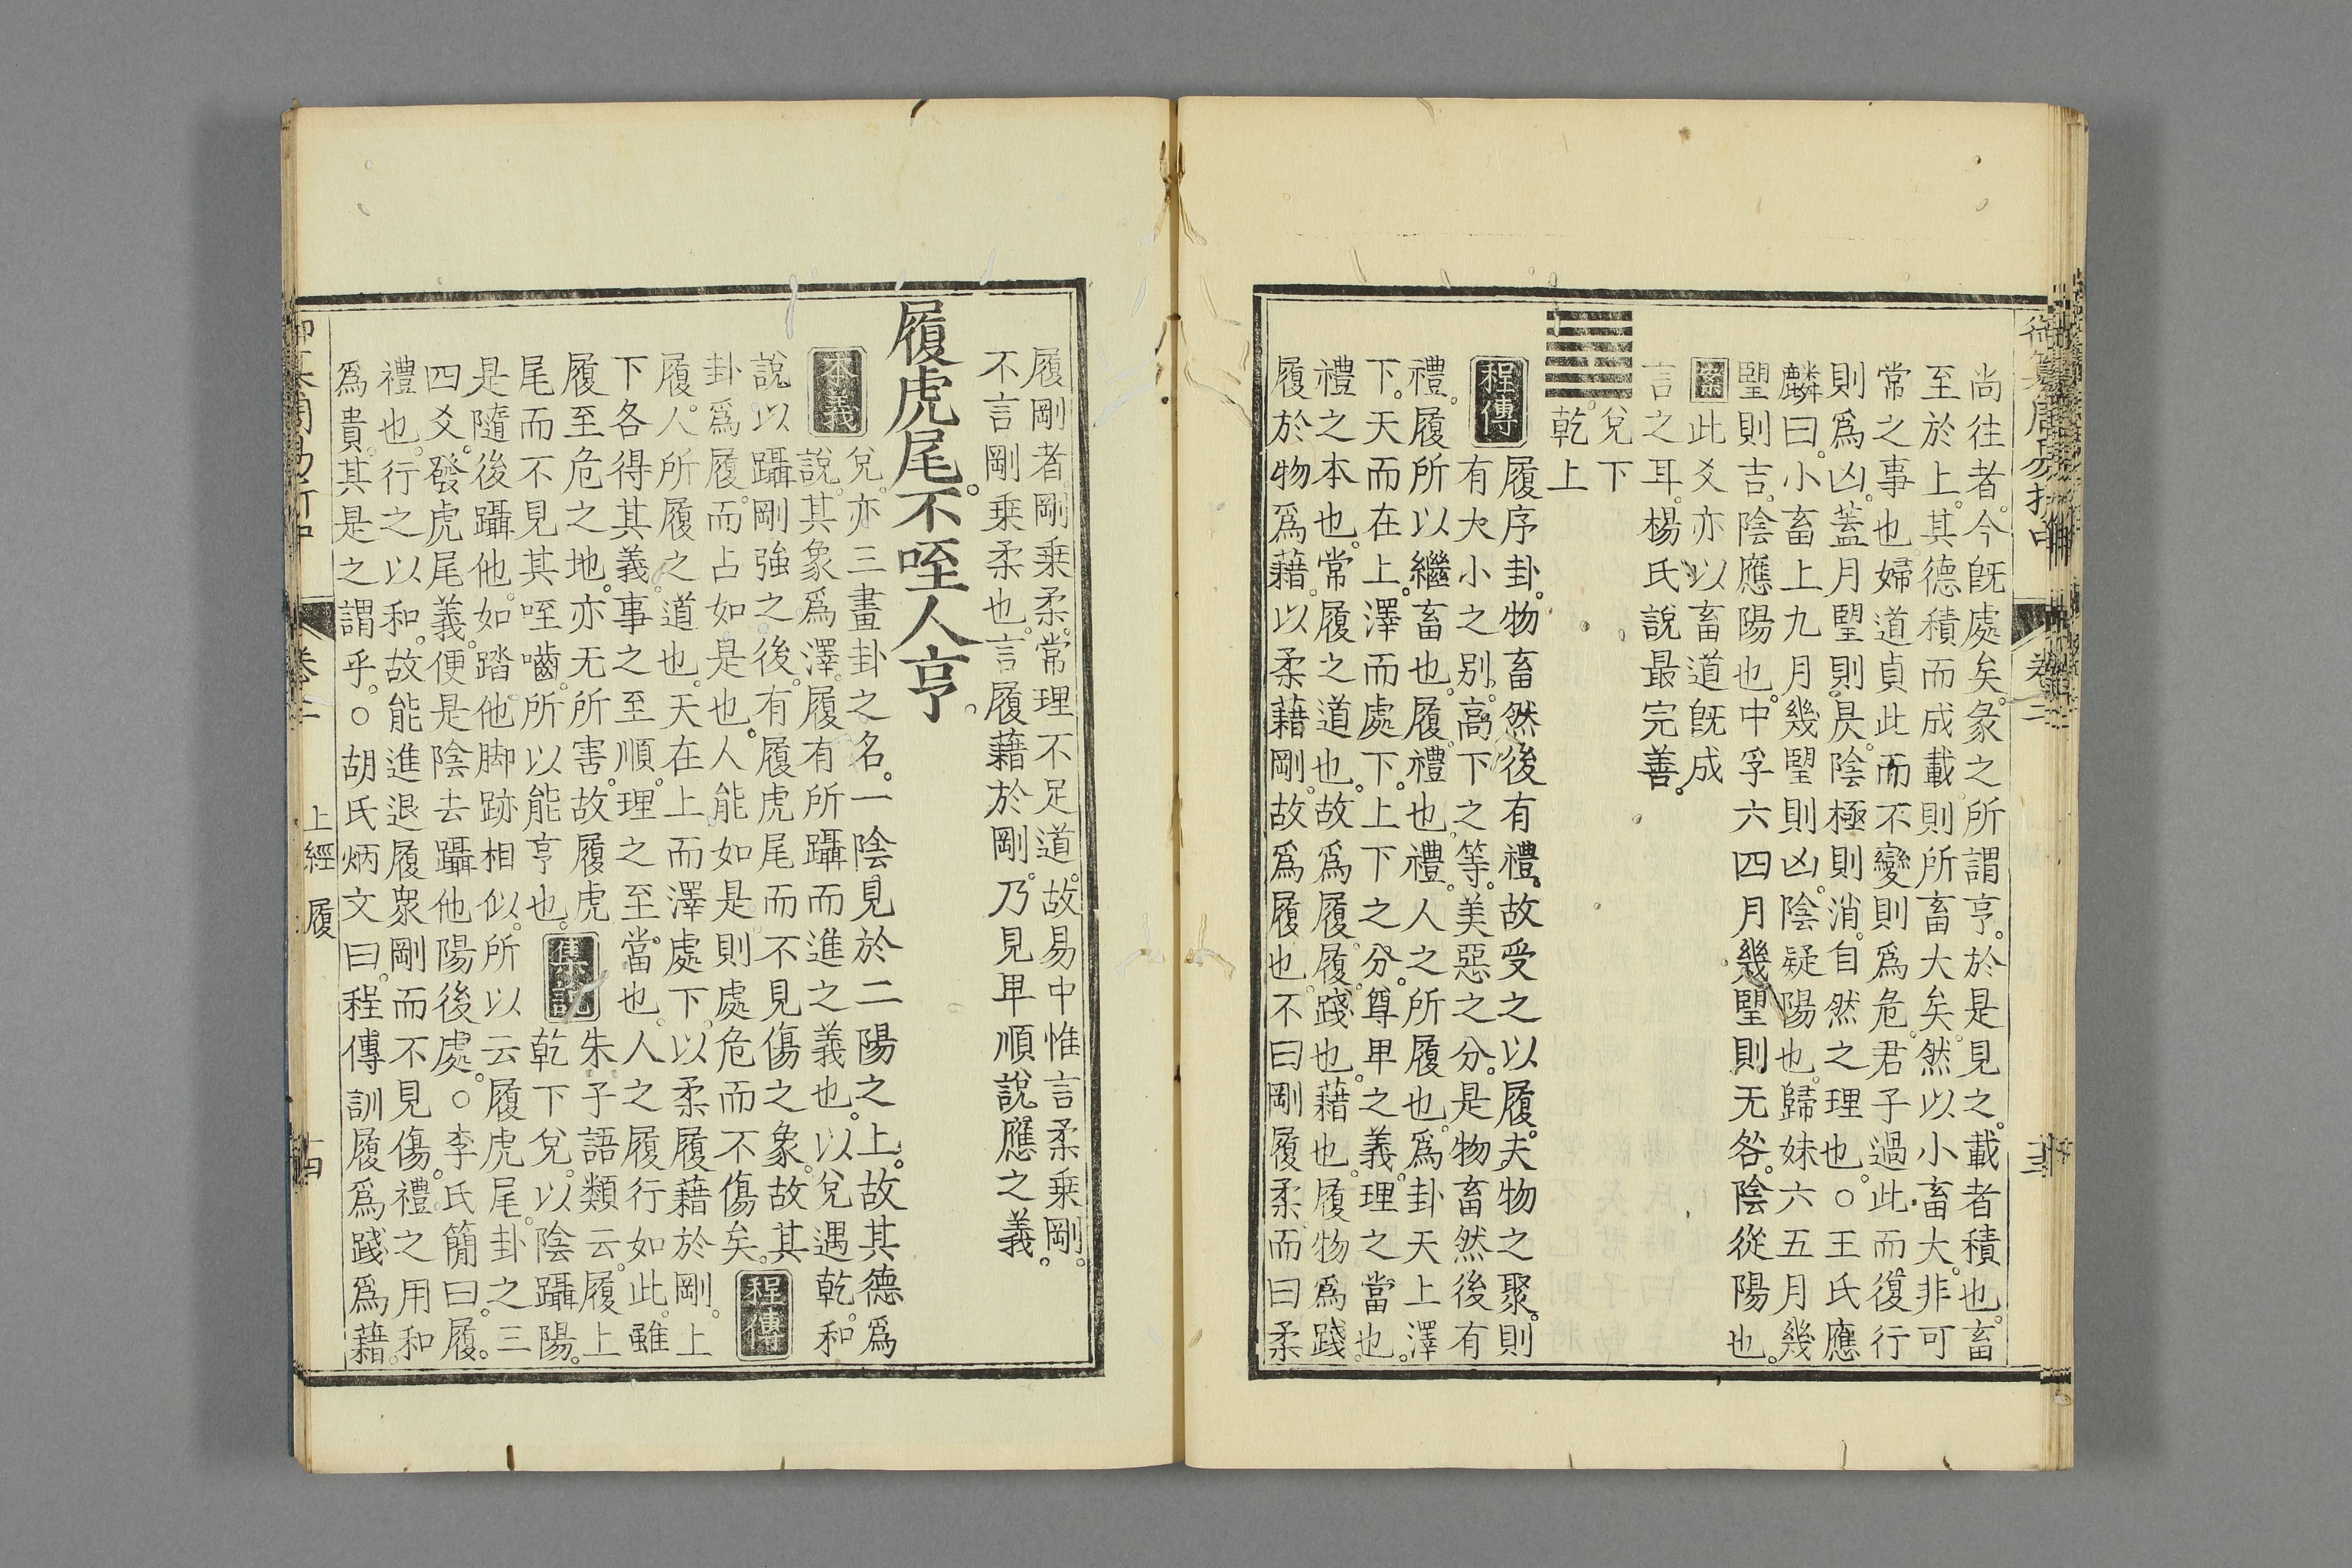 尚往者。今旣處矣。彖之所謂亨。於是見之。載者積也。畜
至於上。其德積而成載。則所畜大矣。然以小畜大。非可
常之事也。婦道貞此而不變則爲危。君子過此而復行
則爲凶。蓋月朢則昃。陰極則消。自然之理也。○王氏應
麟曰。小畜上九月幾朢則凶。陰疑陽也。歸妹六五月幾
朢則吉。陰應陽也。中孚六四月幾朢則无咎。陰從陽也。
案此爻亦以畜道旣成
言之耳。楊氏說最完善。
兌下
乾上
程傳履序卦。物畜然後有禮。故受之以履。夫物之聚。則
有大小之別。高下之等。美惡之分。是物畜然後有
禮。履所以繼畜也。履。禮也。禮。人之所履也。爲卦天上澤
下。天而在上。澤而處下。上下之分。尊卑之義。理之當也。
禮之本也。常履之道也。故爲履。履。踐也。藉也。履物爲踐。
履於物爲藉。以柔藉剛。故爲履也。不曰剛履柔。而曰柔
御纂周易折中 卷二 十三
履剛者。剛乘柔。常理不足道。故易中惟言柔乘剛。
不言剛乘柔也。言履藉於剛。乃見卑順說應之義。
履虎尾。不咥人。亨。
本義兌。亦三畫卦之名。一陰見於二陽之上。故其德爲
說。其象爲澤。履。有所躡而進之義也。以兌遇乾。和
說以躡剛強之後。有履虎尾而不見傷之象。故其
卦爲履。而占如是也。人能如是。則處危而不傷矣。程傳
履。人所履之道也。天在上而澤處下。以柔履藉於剛。上
下各得其義。事之至順。理之至當也。人之履行如此。雖
履至危之地。亦无所害。故履虎
尾而不見其咥嚙。所以能亨也。集說朱子語類云。履上
乾下兌。以陰躡陽。
是隨後躡他。如踏他脚跡相似。所以云履虎尾。卦之三
四爻。發虎尾義。便是陰去躡他陽後處。○李氏簡曰。履。
禮也。行之以和。故能進退履衆剛而不見傷。禮之用和
爲貴。其是之謂乎。○胡氏炳文曰。程傳訓履爲踐爲藉。
上經 履